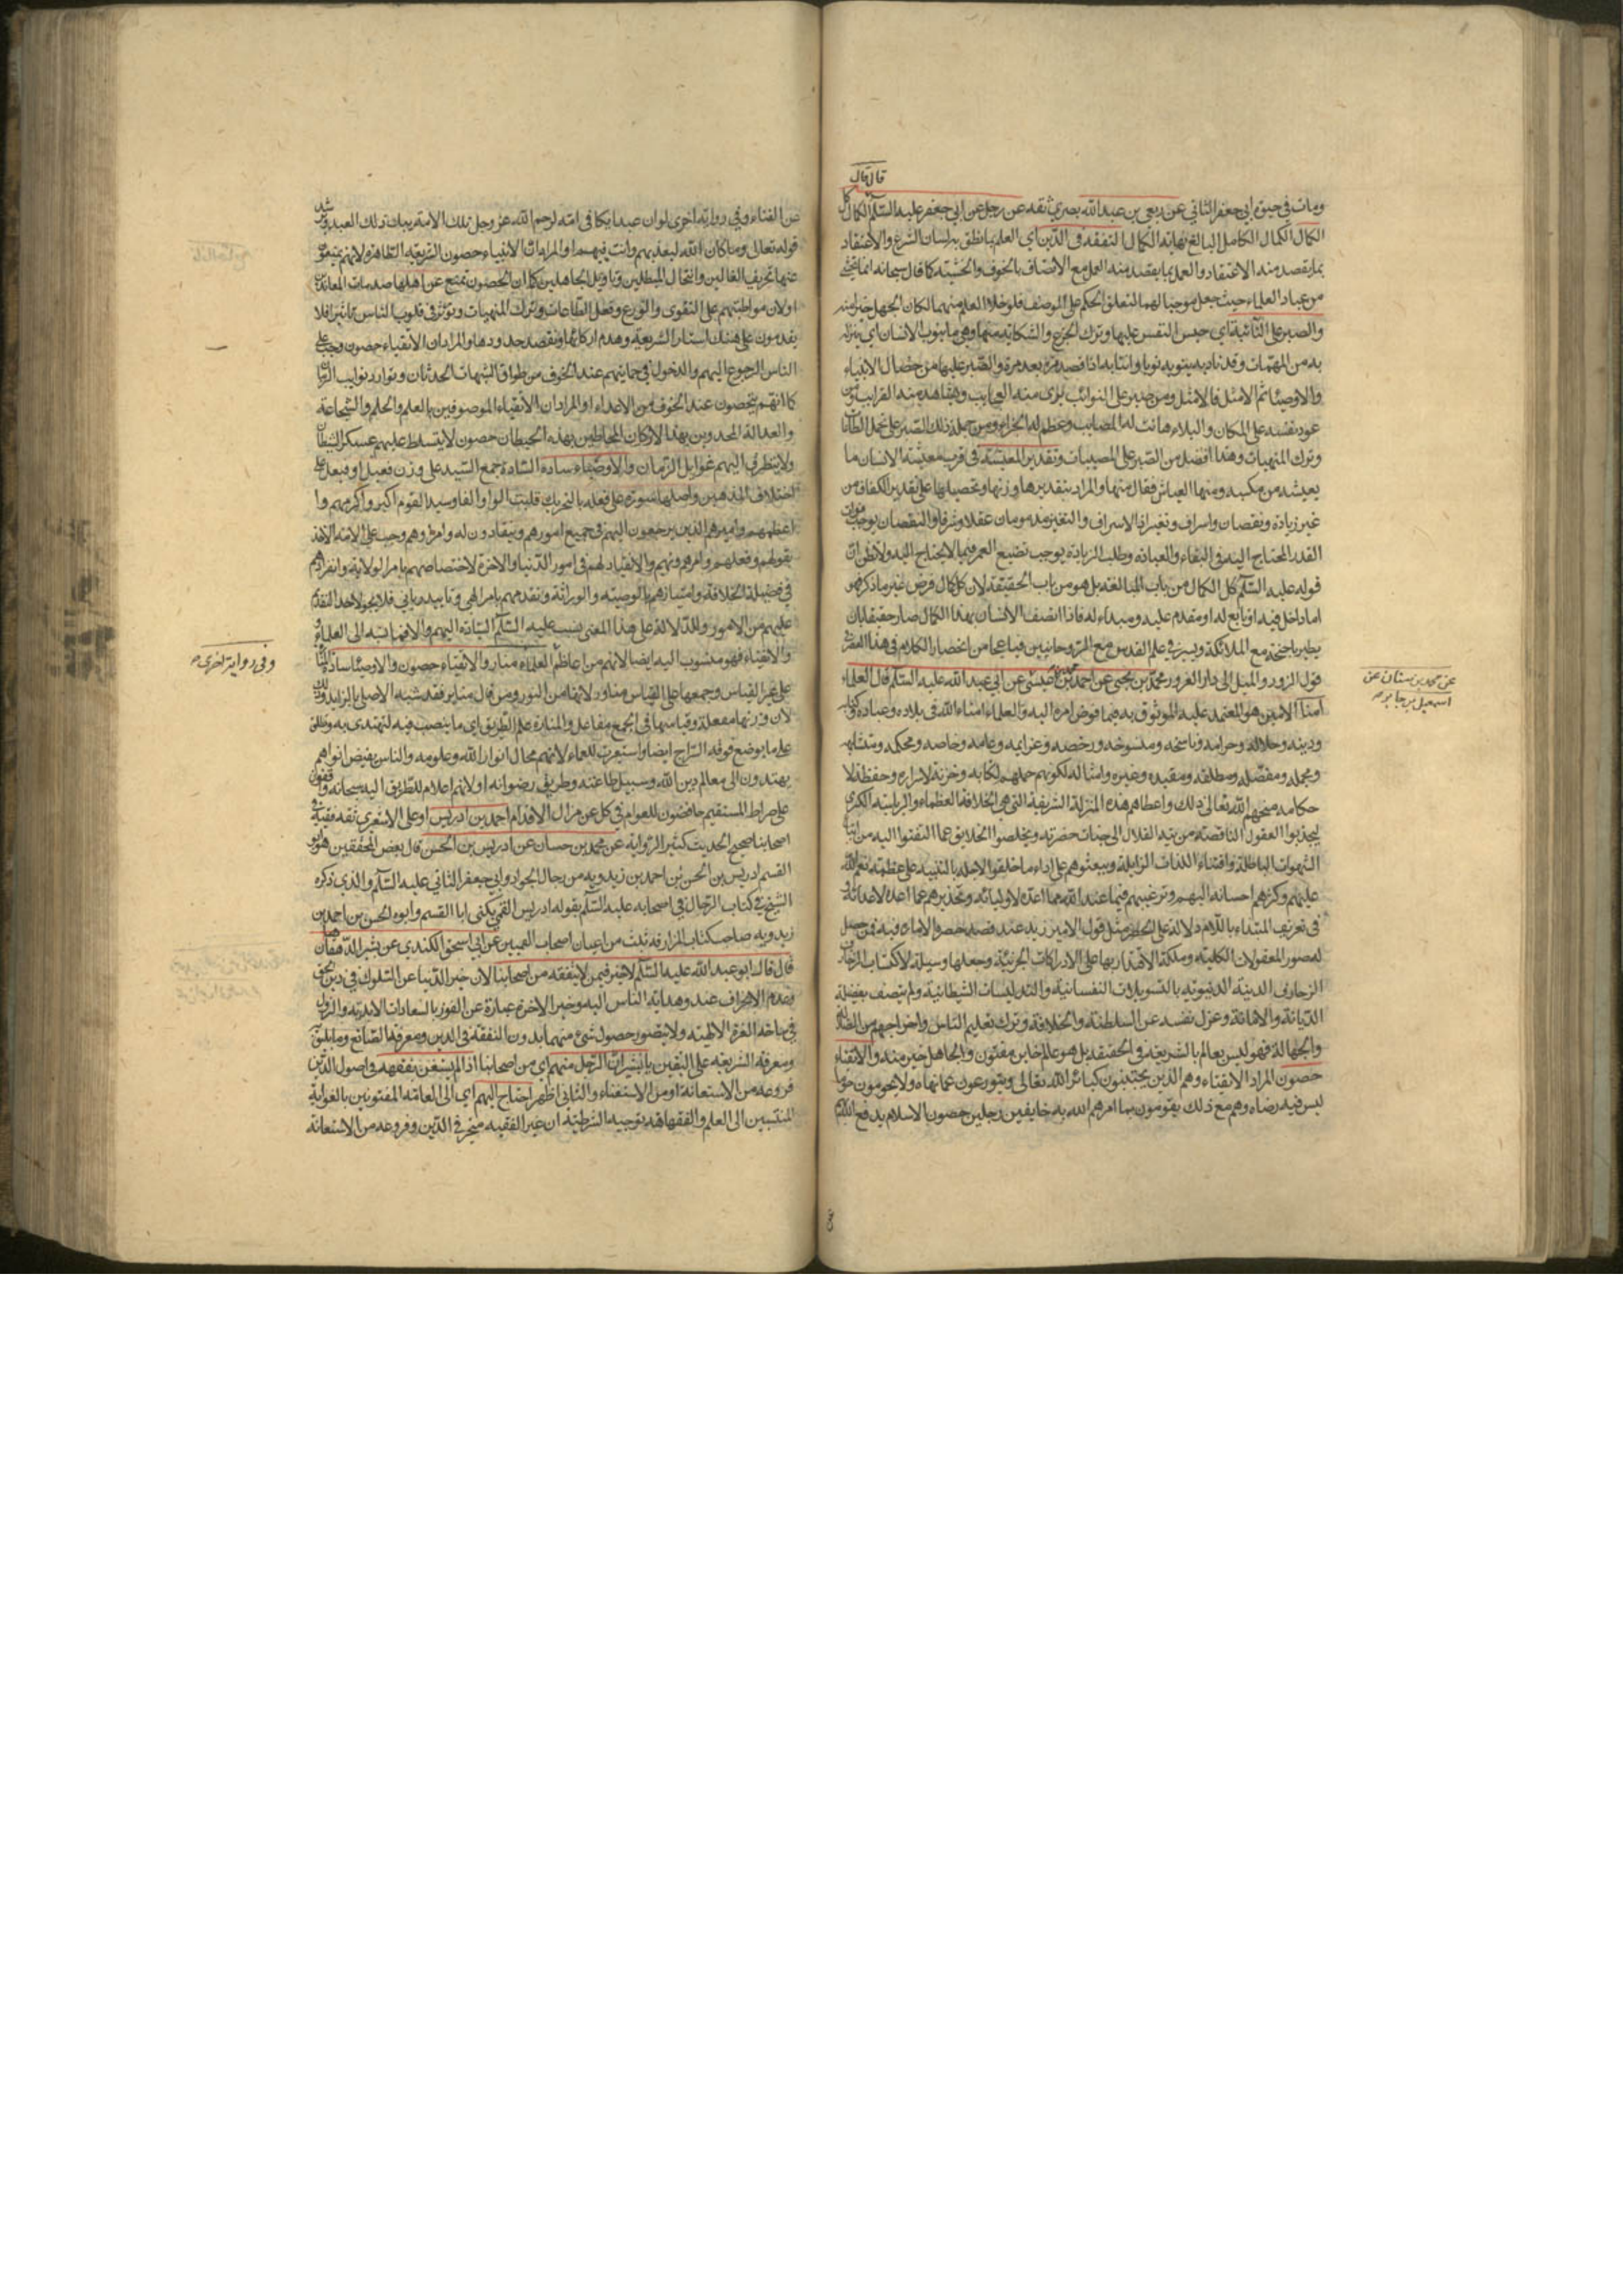 قال قال
ومات في حيوة ابي جعفر الثاني عن ربعي بن عبد الله بصري ثقه عن رجل عن ابي جعفر عليه السلم الكمال كل
الكمال الكمال الكامل البالغ نهايته الكمال التفقه في الدين اي العلم بما نطق به لسان الشرع والاعتقاد
بما يقصد منه الاعتقاد والعمل بما يقصد منه العمل مع الاتصاف بالخوف والخشية كما قال سبحانه انما يخشى
من عباد العلماء حيث جعل موجبا لهما لتعلق الحكم على الموصف فلو خلا العلم منهما لكان الجهل خيرا منه
والصبر على النائبة اي حبس النفس عليها وترك الجزع والشكاية منها وهي ما ينوب الانسان اي ينزل
به من المهمات وقد نابه ينوبه نوبا وانتابه اذا قصده مرة بعد مرة والصبر عليها من خصال الانبياء
والاوصياء ثم الامثل فالامثل ومن صبر على النوائب يرى منه العجايب ويشاهد منه الغرايب ومن
عود نفسه على المكان والبلاء هانت له المصايب وعظم له الجزاء ومن جملة ذلك الصبر على تحمل الطاعات
وترك المنهيات وهذا افضل من الصبر على المصيبات وتقدير المعيشة في قرب معيشة الانسان ما
يعيشه من مكسبه ومنها العباش فقال منها والمراد بتقديرها وزنها وتحصيلها على تقدير الكفاف من
غير زيادة ونقصان واسراف وتقتير فالاسراف والتقتير مذمومان عقلا وشرعا والنقصان يوجب فوات
القدر المحتاج اليه في البقاء والعبادة وطلب الزيادة يوجب تضييع العمر فيما لا يحتاج اليه ولا تظن ان
قوله عليه السلم كل الكمال من باب المبالغه بل هو من باب الحقيقة لان كل كمال فرض غير ما ذكر فهو
اما داخل فيه او تابع له او مقدم عليه ومبداء له فاذا اتصف الانسان بهذا الكمال صار حقيقا بان
يطير باجنحة مع الملائكة ويسير في علم القدس مع الروحانيين فيا عجبا من انحصار الكلام في هذا العصر
قول الزور والميل الى دار الغرور محمد بن يحيى عن احمد بن محمد بن عيسى عن ابي عبد الله عليه السلم قال العلماء
عن محمد بن سنان عن
اسمعيل بن جابر صح
امناء الامين هو المعتمد عليه الموثوق به فيما فوض امره اليه والعلماء امناء الله في بلاده وعباده وكتابه
ودينه وحلاله وحرامه وناسخه ومنسوخه ورخصه وعزايمه وعامه وخاصه ومحكمه ومتشابهه
ومجمله ومفصله ومطلقه ومقيده وغيره وامثاله لكونهم حملهم لكتابه وخزنة لاسراره وحفظة لا
حكامه منحهم الله تعالى ذلك واعطاهم هذه المنزلة الشريفة التي هي الخلافة العظماء والرياسة الكبرى
ليجذبوا العقول الناقصة من تيه الضلال الى جناب حضرته ويخلصوا الخلايق عما التفتوا اليه من
الشهوات الباطلة واقتناء اللذات الزايلة ويبعثوهم على اداء ما خلقوا لاجله بالتنبيه على عظمته نعم الله
عليهم وكثرهم احسانه اليهم وترغيبهم فيما عند الله مما اعده لاوليائه وتحذيرهم عما اعده لاعدائه و
في تعريف المبتداء باللام دلالة على الحصر مثل قول الامير زيد عند قصد حصر الامارة فيه فمن حصل
له صور المعقولات الكلية وملكة الاقتدار بها على الادراكات الجزئية وجعلها وسيلة لاكتساب الزخارف
الزخارف الدنية الدنيوية بالتسويلات النفسانية والتدليسات الشيطانية ولم يتصف بفضيلة
الديانة والامانة وعزل نفسه عن السلطنة والخلافة وترك تعليم الناس واخراجهم من الضلالة
والجهالة فهو ليس بعالم بالشريعة في الحقيقة بل هو عالم خاين مفتون والجاهل خير منه والاتقياء
حصون المراد الاتقياء وهم الذين يجتنبون كبائر الله تعالى ويتورعون عما نهاه ولا يحومون حول
ليس فيه رضاه وهم مع ذلك يقومون بما امرهم الله به خايفين وجلين حصون الاسلام يدفع الله بهم
عن الفناء وفي رواية اخرى لو ان عبدا بكا في امة لرحم الله عز وجل تلك الامة ببكاء ذلك العبد ويرشد
قوله تعالى وما كان الله ليعذبهم وانت فيهم او المراد ان الاتقياء حصون الشريعة الظاهرة لانهم يمنعون
عنها تحريف الغالين وانتحال المبطلين وتاويل الجاهلين كما ان الحصون تمنع عن اهلها صدمات المعاندين
او لان مواظبتهم على التقوى والورع وفعل الطاعات وترك المنهيات وتؤثر في قلوب الناس تاثيرا فلا
يقدمون على هتك استار الشريعة وهدم اركانها ونقصد حدودها والمراد ان الاتقياء حصون وجب على
الناس الرجوع اليهم والدخول في حمايتهم عند الخوف من طوارق الشبهات الحدثان وتوارد نوايب الزمان
كما انهم يتحصون عند الخوف من الاعداء او المراد ان الاتقياء الموصوفين بالعلم والحلم والشجاعة
والعدالة المحدودين بهذا الاركان المحاطين بهذه الحيطان حصون لا يتسلط عليهم عسكر الشيطان
ولا يتطرق اليهم غوايل الزمان والاوصياء سادة السادة جمع السيد على وزن فعيل او فيعل على
اختلاف المذهبين واصلها سودة على فعلة بالتحريك قلبت الواو الفا وسيد القوم اكبر واكرمهم وا
اعظمهم واميرهم الذين يرجعون اليهم في جميع امورهم وينقادون له ولامره وهم وجب على الامة الاخذ
بقولهم وفعلهم وامرهم ونهيهم والانقياد لهم في امور الدنيا والاخرة لاختصاصهم بامر الولاية وانفرادهم
في فضيلة الخلافة وامتيازهم بالوصية والوراثة وتقدمهم بامر الهي وتاييد رباني فلا يجوز لاحد التقدم
عليهم من الامور وللدلالة على هذا المعنى نسب عليه السلم السادة اليهم والا فهاتيه الى العلماء و
والاتقياء فهو منسوب اليه ايضا لانهم من اعاظم العلماء منار والاتقياء حصون والاوصياء سادة
وفي رواية اخرى صح
على غير القياس وجمعها على القياس مناور لانها من النور ومن قال منابر فقد شبه الاصلي بالزايد وذلك
لان وزنها مفعلة وقياسها في الجمع مفاعل والمنارة علم الطريق اي ما ينصب فيه لتهتدى به وتطلق
على ما يوضع فوقه السراج ايضا واستعيرت للعلماء لانهم محال انوار الله وعلومه والناس بفيض انوارهم
يهتدون الى معالم دين الله وسبيل طاعته وطريق رضوانه او لانهم اعلام للطريق اليه سبحانه واقفون
على صراط المستقيم حافضون للعوام في كل عن مزال الاقدام احمد بن ادريس ابو على الاشعري ثقة فقيه في
اصحابنا صحيح الحديث كثير الرواية عن محمد بن حسان عن ادريس بن الحسن قال بعض المحققين هو ابو
القسم ادريس بن الحسن بن احمد بن زيدويه من رجال الجواد وابي جعفر الثاني عليه السلم والذي ذكره
الشيخ في كتاب الرجال في اصحابه عليه السلم بقوله ادريس القمي يكنى ابا القسم وابوه الحسن بن احمد بن
زيدويه صاحب كتاب المزار قد ثبت من اعيان اصحاب القميين عن ابي اسحق الكندي عن بشير الدهقان
قال قال ابو عبد الله عليه السلم لا خير فيمن لا يتفقه من اصحابنا لان خير الدنيا عن السلوك في دين الحق
وعدم الانحراف عنه وهداية الناس اليه وخير الاخرة عبارة عن الفوز بالسعادات الابدية والنزول
في ساحة العزة الالهية ولا يتصور حصول شئ منهما بدون التفقه في الدين ومعرفة الصانع وما يليق
ومعرفة الشريعة على اليقين يا بشير ان الرجل منهم اي من اصحابنا اذا لم يستغن بفقهه واصول الدين
فروعه من الاستعانة او من الاستغناء والثاني اظهر احتاج اليهم اي الى العامة المفتونين بالغواية
المنتسبين الى العلم والفقاهة توجيه الشرطية ان غير الفقيه متحير في الدين وفروعه من الاستعانة